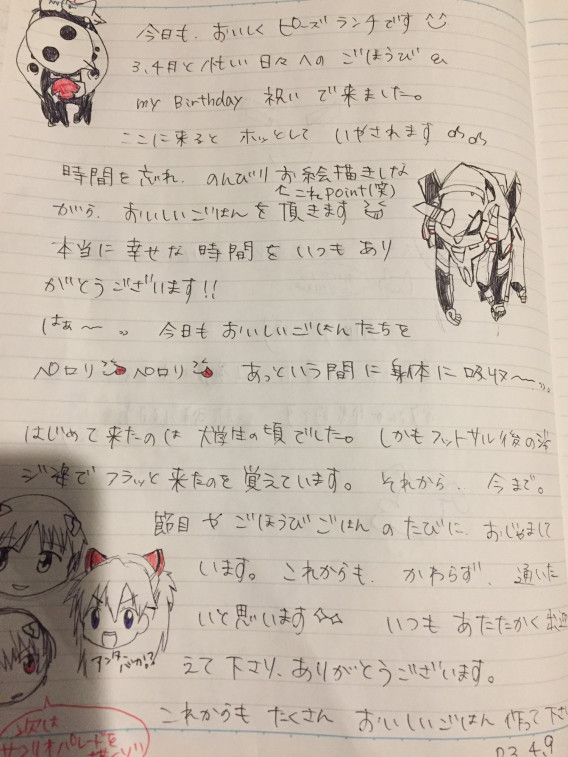 今日も、おいしく ピーズ ランチです
3、4月と忙しい日々への ごほうび &
my Birthday 祝いで来ました。
ここに来ると ホッとして いやされます
時間を忘れ、のんびりお絵描きしな
←これpoint(笑)
がら、おいしいごはんを頂きます
本当に幸せな時間を いつもあり
がとうございます!!
はぁ〜 。。 今日も おいしいごはんたちを
ペロリ ペロリ あっという間に 身体に吸収〜...
はじめて来たのは 大学生の頃でした。しかもフットサル後の
ジ姿で フラッと来たのを 覚えています。それから、今まで。
節目や ごほうびごはん のたびに、おじゃまして
います。これからも、かわらず、通いた
いと思います☆☆ いつも あたたかく出迎
えて下さり、ありがとうございます。
アンタバカ!?
これからも たくさん おいしいごはん 作って下さ
次は
サンリオパレードを
R3.4.9